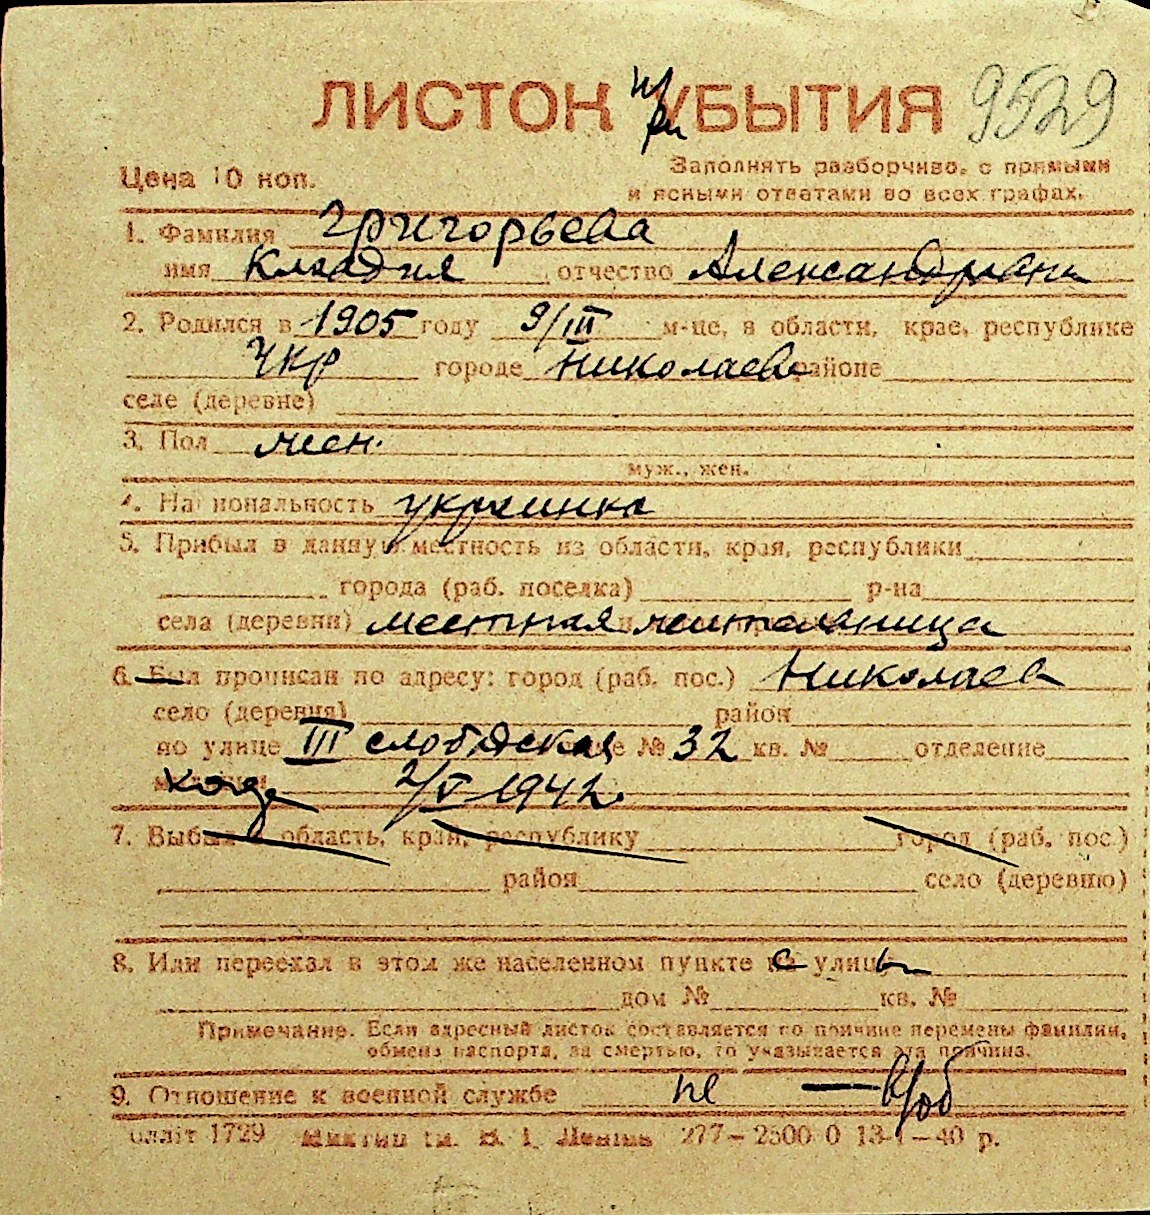 ЛИСТОК при УБЫТИЯ 9529
Цена 10 коп.
Заполнять разборчиво, с прямыми
и ясными ответами во всех графах.
1. Фамилия Григорьева
имя Клавдия отчество Александровна
2. Родился в 1905 году 9/III м-це, в области, крае, республике
Укр городе Николаеве районе
селе (деревне)
3. Пол жен.
муж., жен.
4. Национальность украинка
5. Прибыл в данную местность из области, края, республики
города (раб. поселка) р-на
села (деревни) местная жительница
6. Был прописан по адресу: город (раб. пос.) Николаев
село (деревня) район
по улице III слободская № 32 кв. № отделение
когда 2/V 1942
7. Выбыл в область, край, республику город (раб. пос.)
район село (деревню)
8. Или переехал в этом же населенном пункте с улицы
дом № кв. №
Примечание. Если адресный листок составляется по причине перемены фамилии,
обмена паспорта, за смертью, то указывается эта причина.
9. Отношение к военной службе не — в/об
1729 277—2500 0 13-1—40 р.